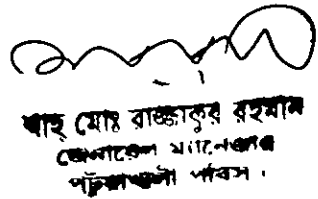 শাহ্ মোঃ রাজ্জাকুর রহমান
জেনারেল ম্যানেজার
পটুয়াখালী পবিস ।